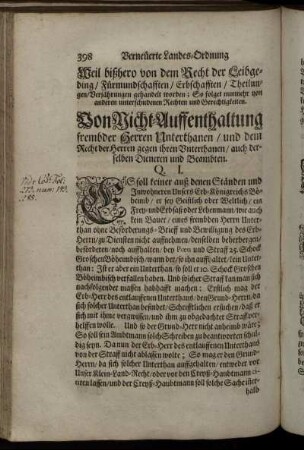 398 Verneuerte Landes-Ordnung
Weil bißhero von dem Recht der Leibge-
ding / Fürmundschafften / Erbschafften / Theilun-
gen / Verjährungen gehandelt worden; So folget nunmehr von
anderen unterschiedenen Rechten und Gerechtigkeiten.
Von Nicht-Auffenthaltung
frembder Herren Unterthanen / und dem
Recht der Herren gegen ihren Unterthanen / auch der-
selben Dieneren und Beambten.
Q. I.
ES soll keiner auß denen Ständen und
Innwohnern Unsers Erb-Königreichs Bö-
heimb / er sey Geistlich oder Weltlich / ein
Frey- und Erbsaß / oder Lehenmann / wie auch
kein Bauer / eines frembden Herrn Unter-
than ohne Beforderungs-Brieff und Bewilligung des Erb-
Herrn / zu Diensten nicht auffnehmen / denselben beherbergen /
beforderen / noch auffhalten / bey Poen und Straff 25. Schock
Groschen Böheimbisch / wann der / so ihn auffhält / sein Unter-
than: Ist er aber ein Unterthan / so soll er 10. Schock Groschen
Böheimbisch verfallen haben. Und solcher Straff kan man sich
nachfolgender massen habhafft machen: Erstlich mag der
Erb-Herr des entlauffenen Unterthans / den Grund-Herrn / da
sich solcher Unterthan befindet / Schrifftlichen ersuchen / daß er
sich mit ihme vergwissen / und ihm zu obgedachter Straff ver-
helffen wolle. Und so der Grund-Herr nicht anheimb wäre;
So soll sein Ambtmann solch Schreiben zu beantworten schul-
dig seyn. Da nun der Erb-Herr des entlauffenen Unterthans
von der Straff nicht ablassen wolte; So mag er den Grund-
Herrn / da sich solcher Unterthan auffgehalten / entweder vor
Unser Klein-Land-Recht / oder vor den Creyß-Haubtmann ci-
tiren lassen / und der Creyß-Haubtmann soll solche Sache inner-
halb